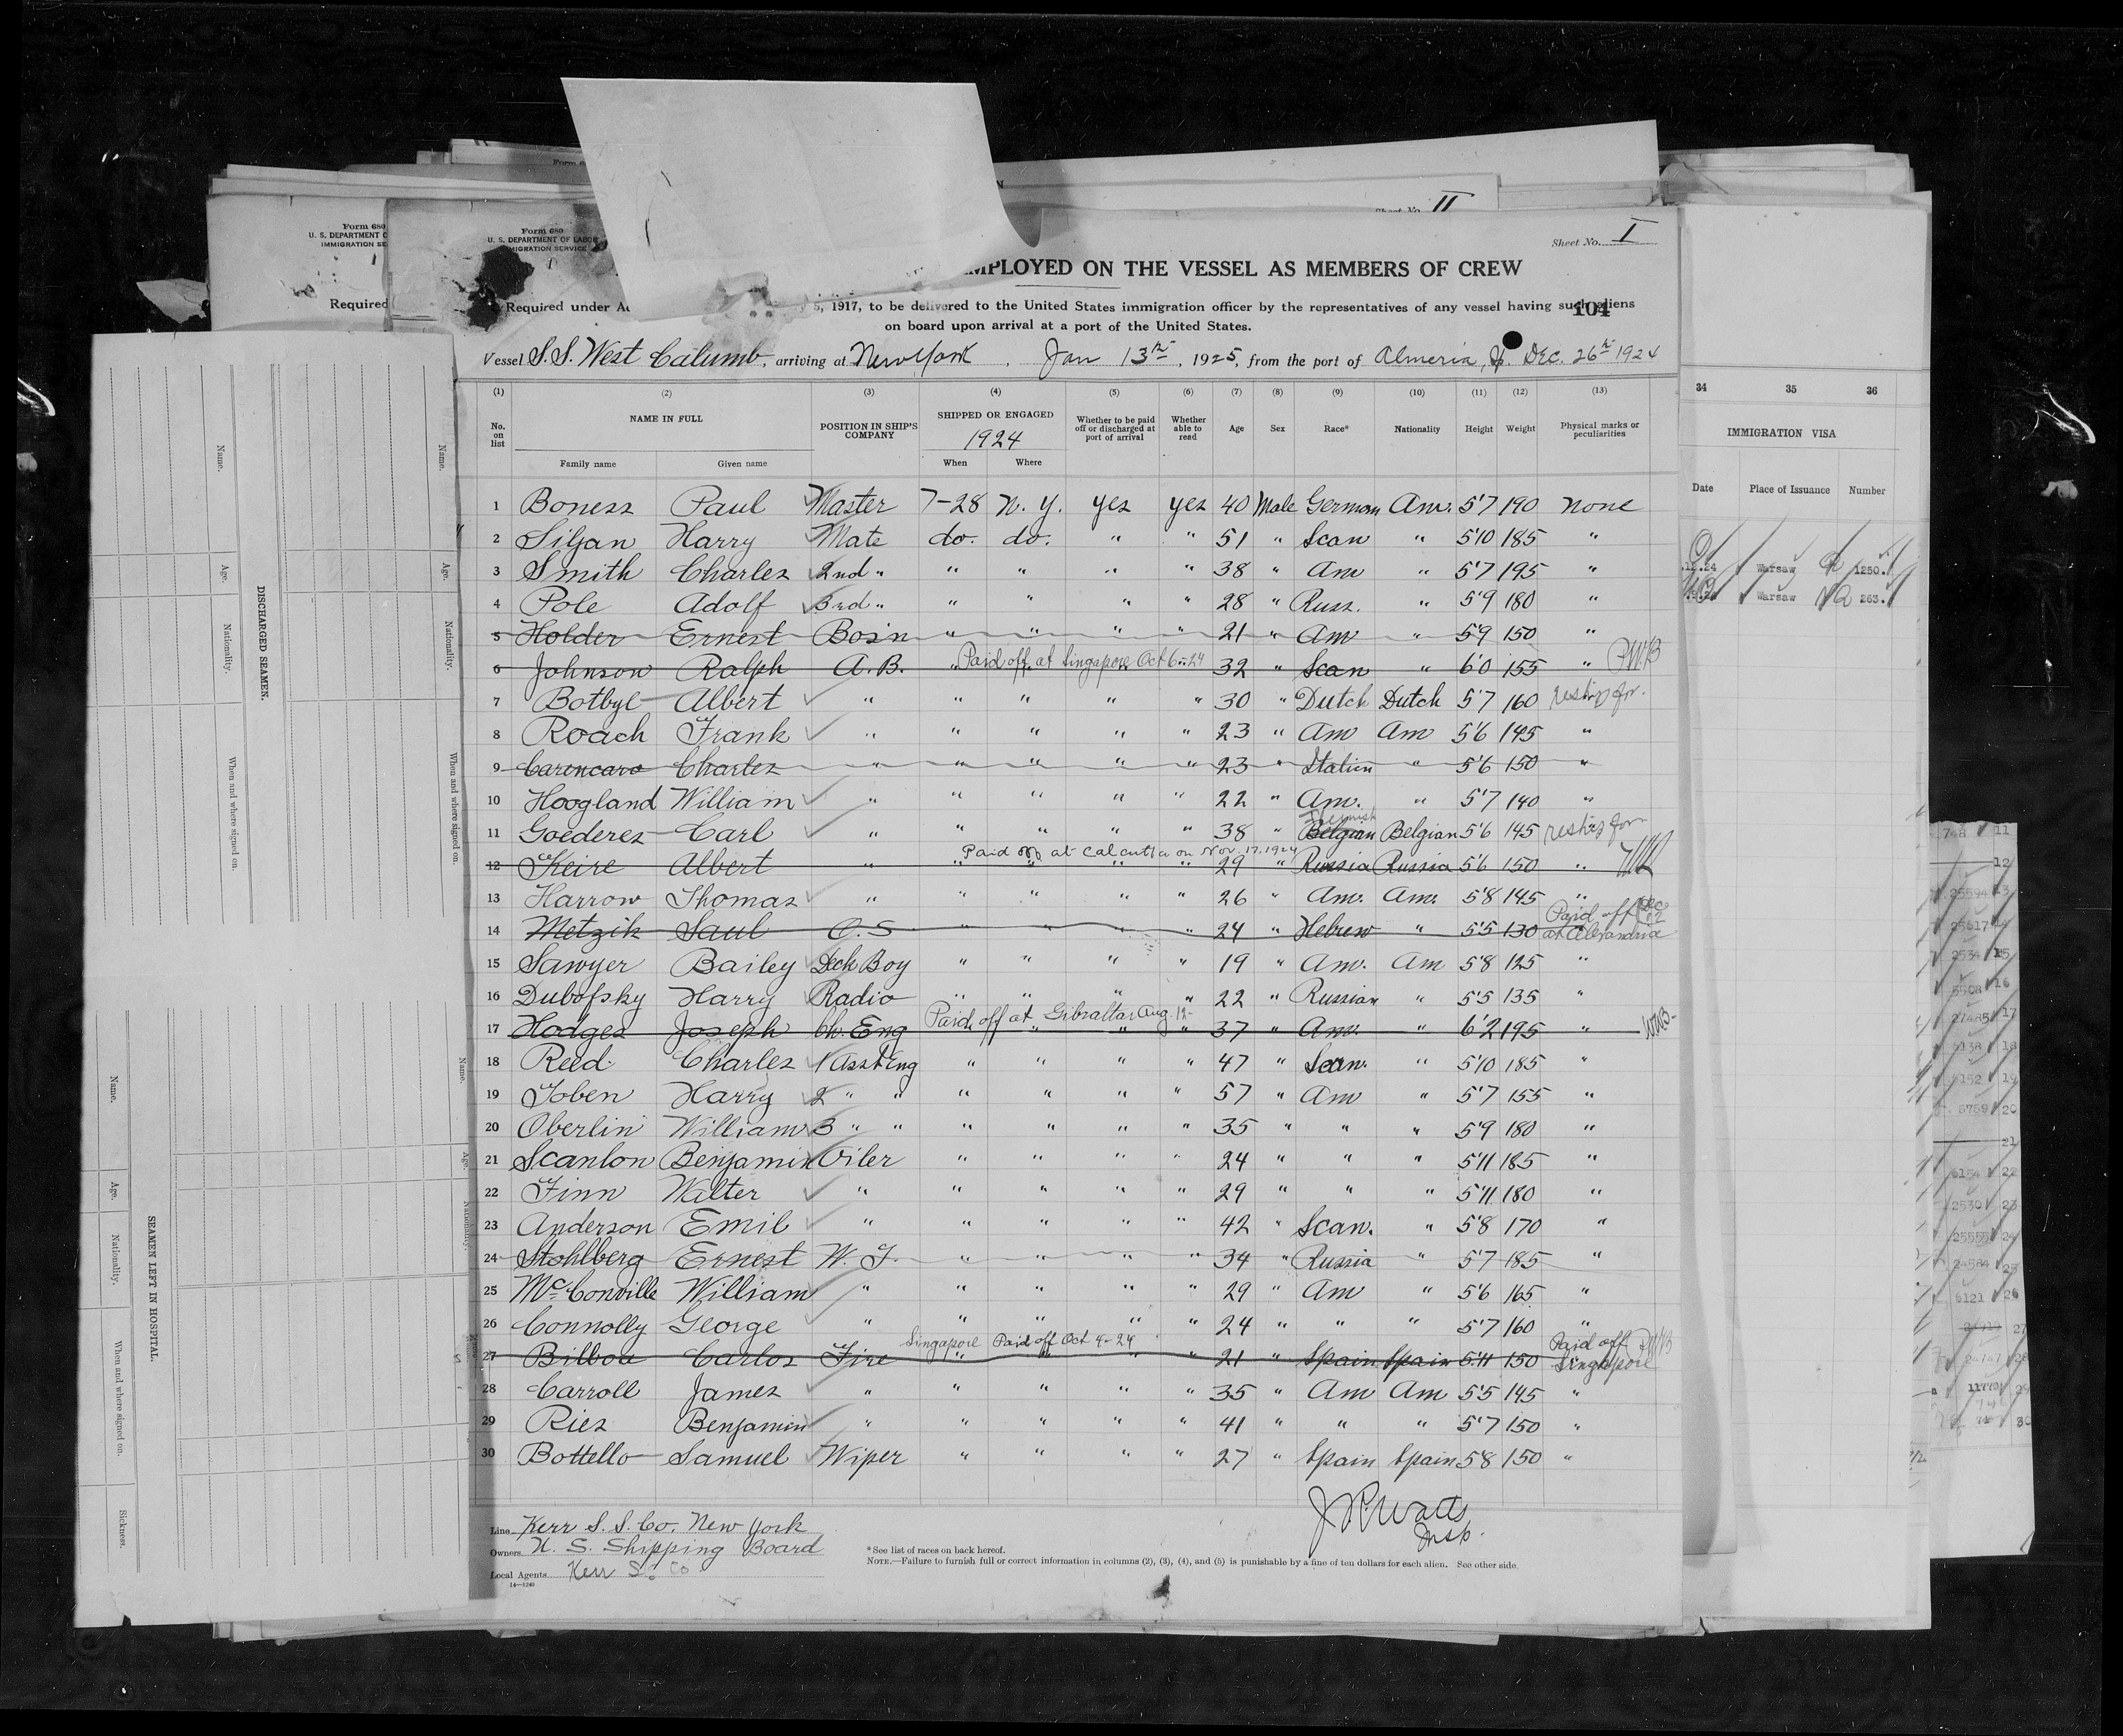 Form 680
U. S. DEPARTMENT O
IMMIGRATION SE
Required
Form 680
U. S. DEPARTMENT OF LABOR
IMMIGRATION SERVICE
Sheet No. II
Sheet No. I
MPLOYED ON THE VESSEL AS MEMBERS OF CREW
Required under Ac 5, 1917, to be delivered to the United States immigration officer by the representatives of any vessel having such aliens
104
on board upon arrival at a port of the United States.
Vessel S.S. West Calumb, arriving at New York, Jan 13th, 1925, from the port of Almeria, Dec. 26th 1924
(1) (2) (3) (4) (5) (6) (7) (8) (9) (10) (11) (12) (13)
No. on list NAME IN FULL Family name Given name POSITION IN SHIP'S COMPANY SHIPPED OR ENGAGED 1924 When Where Whether to be paid off or discharged at port of arrival Whether able to read Age Sex Race* Nationality Height Weight Physical marks or peculiarities
1 Boness Paul Master 7-28 N. Y. yes yes 40 Male German Am. 5'7 190 none
2 Siljan Harry Mate do. do. " " 51 " Scan " 5'10 185 "
3 Smith Charles 2nd " " " " " 38 " Am " 5'7 195 "
4 Pole Adolf 3rd " " " " " 28 " Russ. " 5'9 180 "
5 Holder Ernest Bos'n " " " " 21 " Am " 5'9 150 "
Paid off at Singapore Oct 6-24
6 Johnson Ralph A. B. " " " " 32 " Scan " 6'0 155 " PWB
7 Botbyl Albert " " " " " 30 " Dutch Dutch 5'7 160
8 Roach Frank " " " " " 23 " Am Am 5'6 145 "
9 Carencaro Charles " " " " " 23 " Italien " 5'6 150 "
10 Hoogland William " " " " " 22 " Am. " 5'7 140 "
Flemish
11 Goederes Carl " " " " " 38 " Belgian Belgian 5'6 145
Paid off at Calcutta on Nov. 17. 1924
12 Keire Albert " " " " " 29 Russia Russia 5'6 150 "
13 Harrow Thomas " " " " " 26 " Am. Am. 5'8 145 "
14 Metzik Saul O. S " " " " 24 " Hebrew " 5'5 130 Paid off Dec 12 at Alexandria
15 Sawyer Bailey Deck Boy " " " " 19 " Am. Am 5'8 125 "
16 Dubofsky Harry Radio " " " " 22 " Russian " 5'5 135 "
Paid off at Gibraltar Aug. 12-
17 Hodges Joseph Ch. Eng " " " 37 " Am. " 6'2 195 "
18 Reed Charles 1 Asst Eng " " " " 47 " Scan. " 5'10 185 "
19 Toben Harry 2 " " " " " " 57 " Am " 5'7 155 "
20 Oberlin William 3 " " " " " " 35 " " " 5'9 180 "
21 Scanlon Benjamin Oiler " " " " 24 " " " 5'11 185 "
22 Finn Walter " " " " " 29 " " " 5'11 180 "
23 Anderson Emil " " " " " 42 " Scan. " 5'8 170 "
24 Stohlberg Ernest W. T. " " " " 34 " Russia " 5'7 185 "
25 McConville William " " " " " 29 " Am " 5'6 165 "
26 Connolly George " " " " " 24 " " " 5'7 160 "
Singapore Paid off Oct 4-24
27 Bilbou Carlos Fire " " " " 21 " Spain Spain 5'11 150 Paid off Singapore
28 Carroll James " " " " " 35 " Am Am 5'5 145 "
29 Ries Benjamin " " " " " 41 " " " 5'7 150 "
30 Bottello Samuel Wiper " " " " 27 " Spain Spain 5'8 150 "
J P Watts
Insp.
Line Kerr S. S. Co. New York
Owners U. S. Shipping Board
Local Agents Kerr S.S. Co
14—1240
*See list of races on back hereof.
NOTE.—Failure to furnish full or correct information in columns (2), (3), (4), and (5) is punishable by a fine of ten dollars for each alien. See other side.
34 35 36
IMMIGRATION VISA
Date Place of Issuance Number
Warsaw 1250
Warsaw 263
DISCHARGED SEAMEN.
Name. Age. Nationality. When and where signed on.
Name. Age. Nationality. When and where signed on.
SEAMEN LEFT IN HOSPITAL.
Name. Age. Nationality. When and where signed on. Sickness.